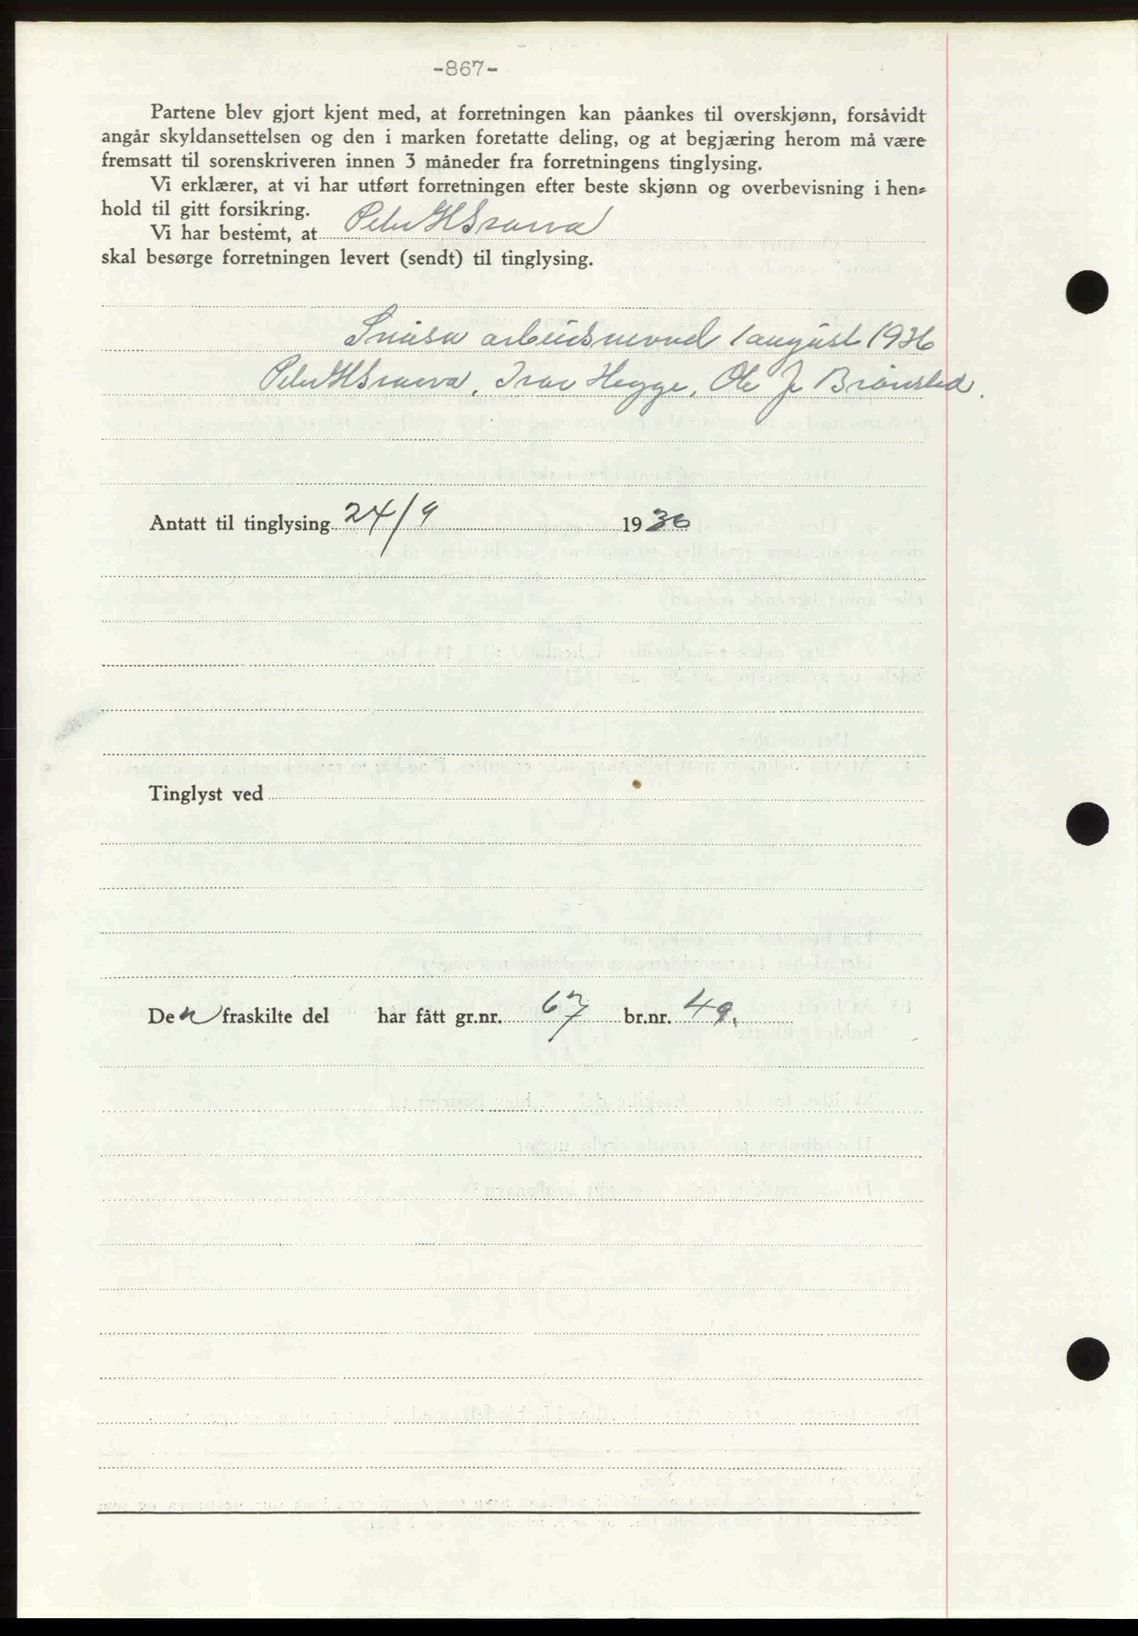 -867-
Partene blev gjort kjent med, at forretningen kan påankes til overskjønn, forsåvidt
angår skyldansettelsen og den i marken foretatte deling, og at begjæring herom må være
fremsatt til sorenskriveren innen 3 måneder fra forretningens tinglysing.
Vi erklærer, at vi har utført forretningen efter beste skjønn og overbevisning i hen-
hold til gitt forsikring.
Vi har bestemt, at Peter H
skal besørge forretningen levert (sendt) til tinglysing.
Snåsa 1 august 1936
Peter H , Ivar Hegge, Ole J. Brønstad.
Antatt til tinglysing 24/9 1936
Tinglyst ved
Den fraskilte del har fått gr.nr. 67 br.nr. 49.